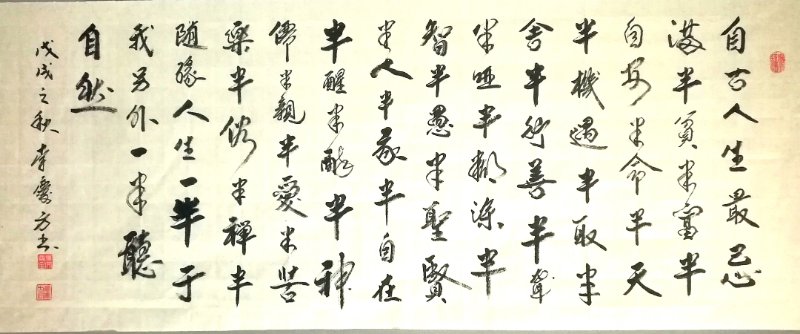 自古人生最忌
滿半貧半富半
自安半命半天
半機遇半取半
舍半行善半聾
半啞半糊涂半
智半愚半聖賢
半人半我半自在
半醒半醉半神
僊半親半愛半苦
樂半俗半禪半
随緣人生一半于
我另外一半聽
自然
戊戌之秋李慶方书